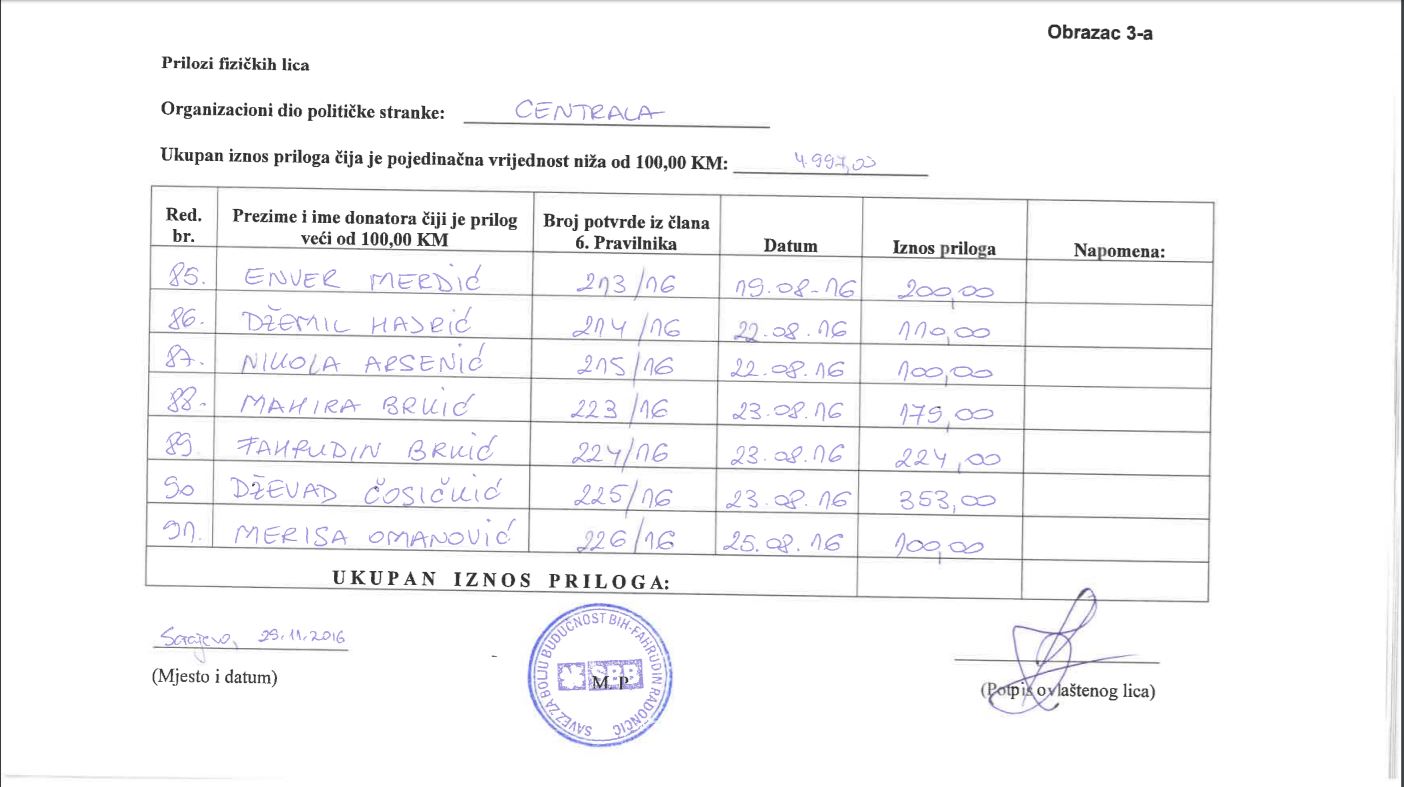 Obrazac 3-a
Prilozi fizičkih lica
Organizacioni dio političke stranke: CENTRALA
Ukupan iznos priloga čija je pojedinačna vrijednost niža od 100,00 KM: 4.997,00
Red. br. Prezime i ime donatora čiji je prilog veći od 100,00 KM Broj potvrde iz člana 6. Pravilnika Datum Iznos priloga Napomena:
85. ENVER MERDIĆ 213/16 19.08-16 200,00
86. DŽEMIL HAJRIĆ 214/16 22.08.16 110,00
87. NIKOLA ARSENIĆ 215/16 22.08.16 100,00
88. MAHIRA BRKIĆ 223/16 23.08.16 179,00
89. FAHRUDIN BRKIĆ 224/16 23.08.16 224,00
90 DŽEVAD ČOSIČKIĆ 225/16 23.08.16 353,00
91. MERISA OMANOVIĆ 226/16 25.08.16 100,00
UKUPAN IZNOS PRILOGA:
Sarajevo, 29.11.2016
(Mjesto i datum)
SAVEZ ZA BOLJU BUDUĆNOST BIH-FAHRUDIN RADONČIĆ
SBB
M P
(Potpis ovlaštenog lica)